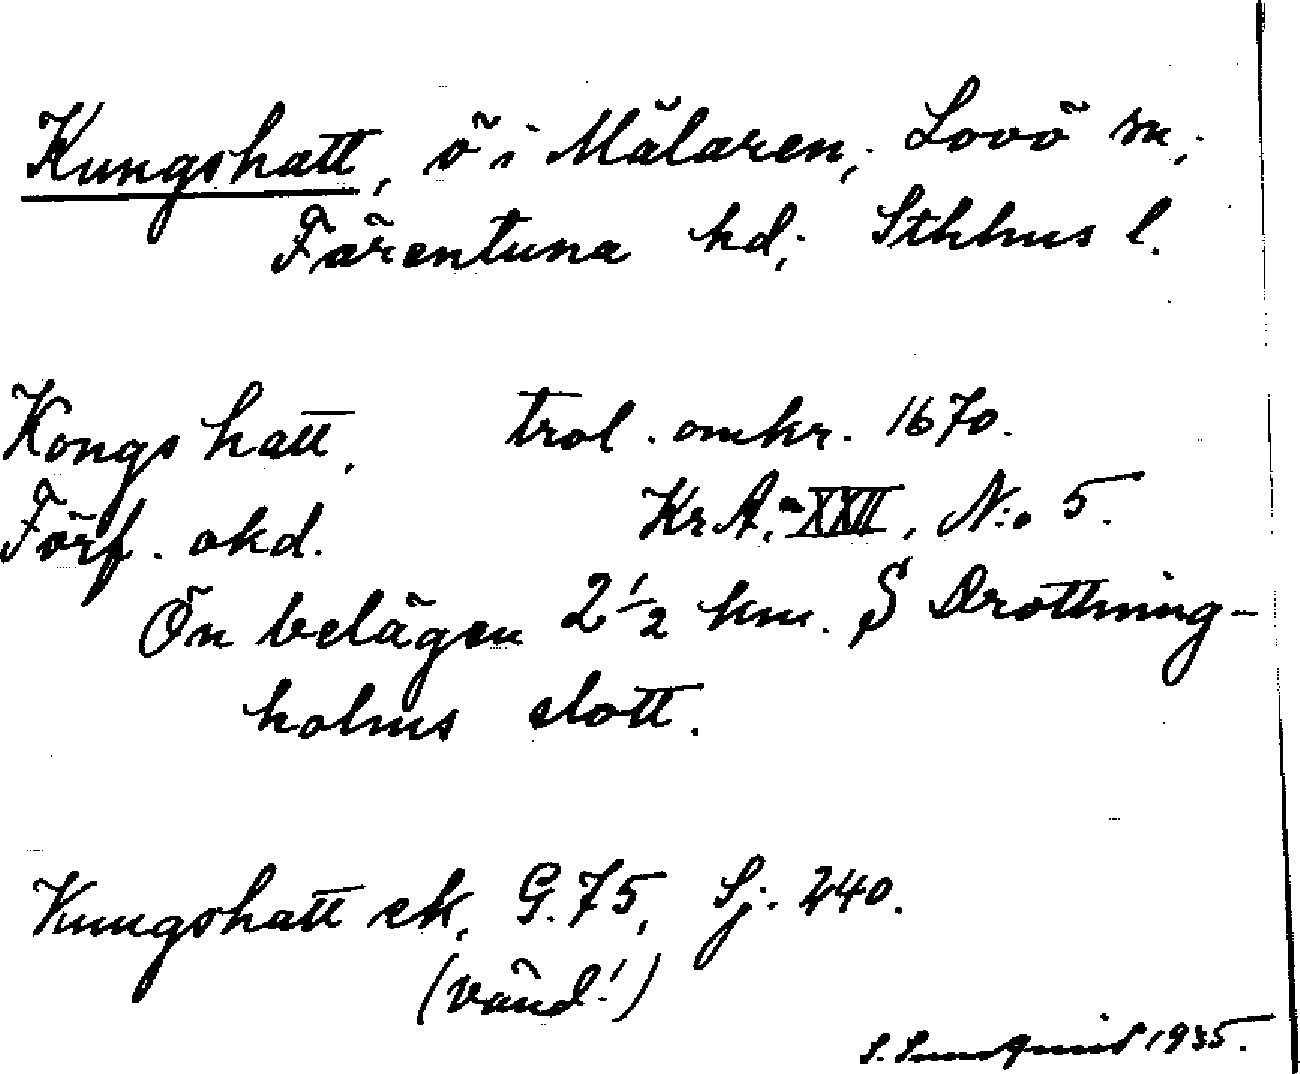 Kungshatt, ö i Mälaren, Lovö sn,
Färentuna hd, Sthhus l.
Kongs hatt, trol. omkr. 1670.
Förf. okd. KrA, XXII, N:o 5.
Ön belägen 2 1/2 km. S Drottning-
holms slott.
Kungshatt ek. G. 75, Sj. 240.
(vänd!)
S. 1935.